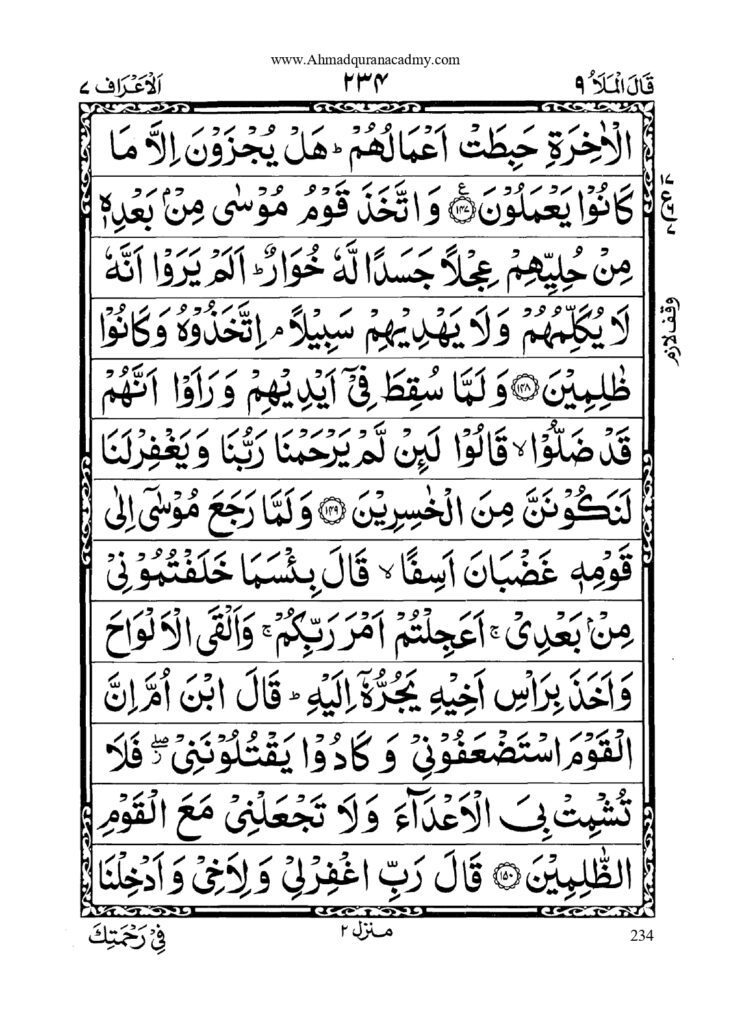 www.Ahmadquranacadmy.com
قَالَ الْمَلَاُ ٩ ٢٣٤ اَلْاَعْرَاف ٧
الْاٰخِرَةِ حَبِطَتْ اَعْمَالُهُمْ ؕ هَلْ يُجْزَوْنَ اِلَّا مَا
كَانُوْا يَعْمَلُوْنَ ﴿١٤٧﴾ ع وَ اتَّخَذَ قَوْمُ مُوْسٰى مِنْۢ بَعْدِهٖ
مِنْ حُلِيِّهِمْ عِجْلًا جَسَدًا لَّهٗ خُوَارٌ ؕ اَلَمْ يَرَوْا اَنَّهٗ
لَا يُكَلِّمُهُمْ وَ لَا يَهْدِيْهِمْ سَبِيْلًا ۘ اِتَّخَذُوْهُ وَ كَانُوْا
ظٰلِمِيْنَ ﴿١٤٨﴾ وَ لَمَّا سُقِطَ فِيْۤ اَيْدِيْهِمْ وَ رَاَوْا اَنَّهُمْ
قَدْ ضَلُّوْا ۙ قَالُوْا لَىِٕنْ لَّمْ يَرْحَمْنَا رَبُّنَا وَ يَغْفِرْ لَنَا
لَنَكُوْنَنَّ مِنَ الْخٰسِرِيْنَ ﴿١٤٩﴾ وَ لَمَّا رَجَعَ مُوْسٰۤى اِلٰى
قَوْمِهٖ غَضْبَانَ اَسِفًا ۙ قَالَ بِئْسَمَا خَلَفْتُمُوْنِيْ
مِنْۢ بَعْدِيْ ۚ اَعَجِلْتُمْ اَمْرَ رَبِّكُمْ ۚ وَ اَلْقَى الْاَلْوَاحَ
وَ اَخَذَ بِرَاْسِ اَخِيْهِ يَجُرُّهٗۤ اِلَيْهِ ؕ قَالَ ابْنَ اُمَّ اِنَّ
الْقَوْمَ اسْتَضْعَفُوْنِيْ وَ كَادُوْا يَقْتُلُوْنَنِيْ ۖؗ فَلَا
تُشْمِتْ بِيَ الْاَعْدَآءَ وَ لَا تَجْعَلْنِيْ مَعَ الْقَوْمِ
الظّٰلِمِيْنَ ﴿١٥٠﴾ قَالَ رَبِّ اغْفِرْ لِيْ وَ لِاَخِيْ وَ اَدْخِلْنَا
وقف لازم
234 منزل ٢ فِيْ رَحْمَتِكَ